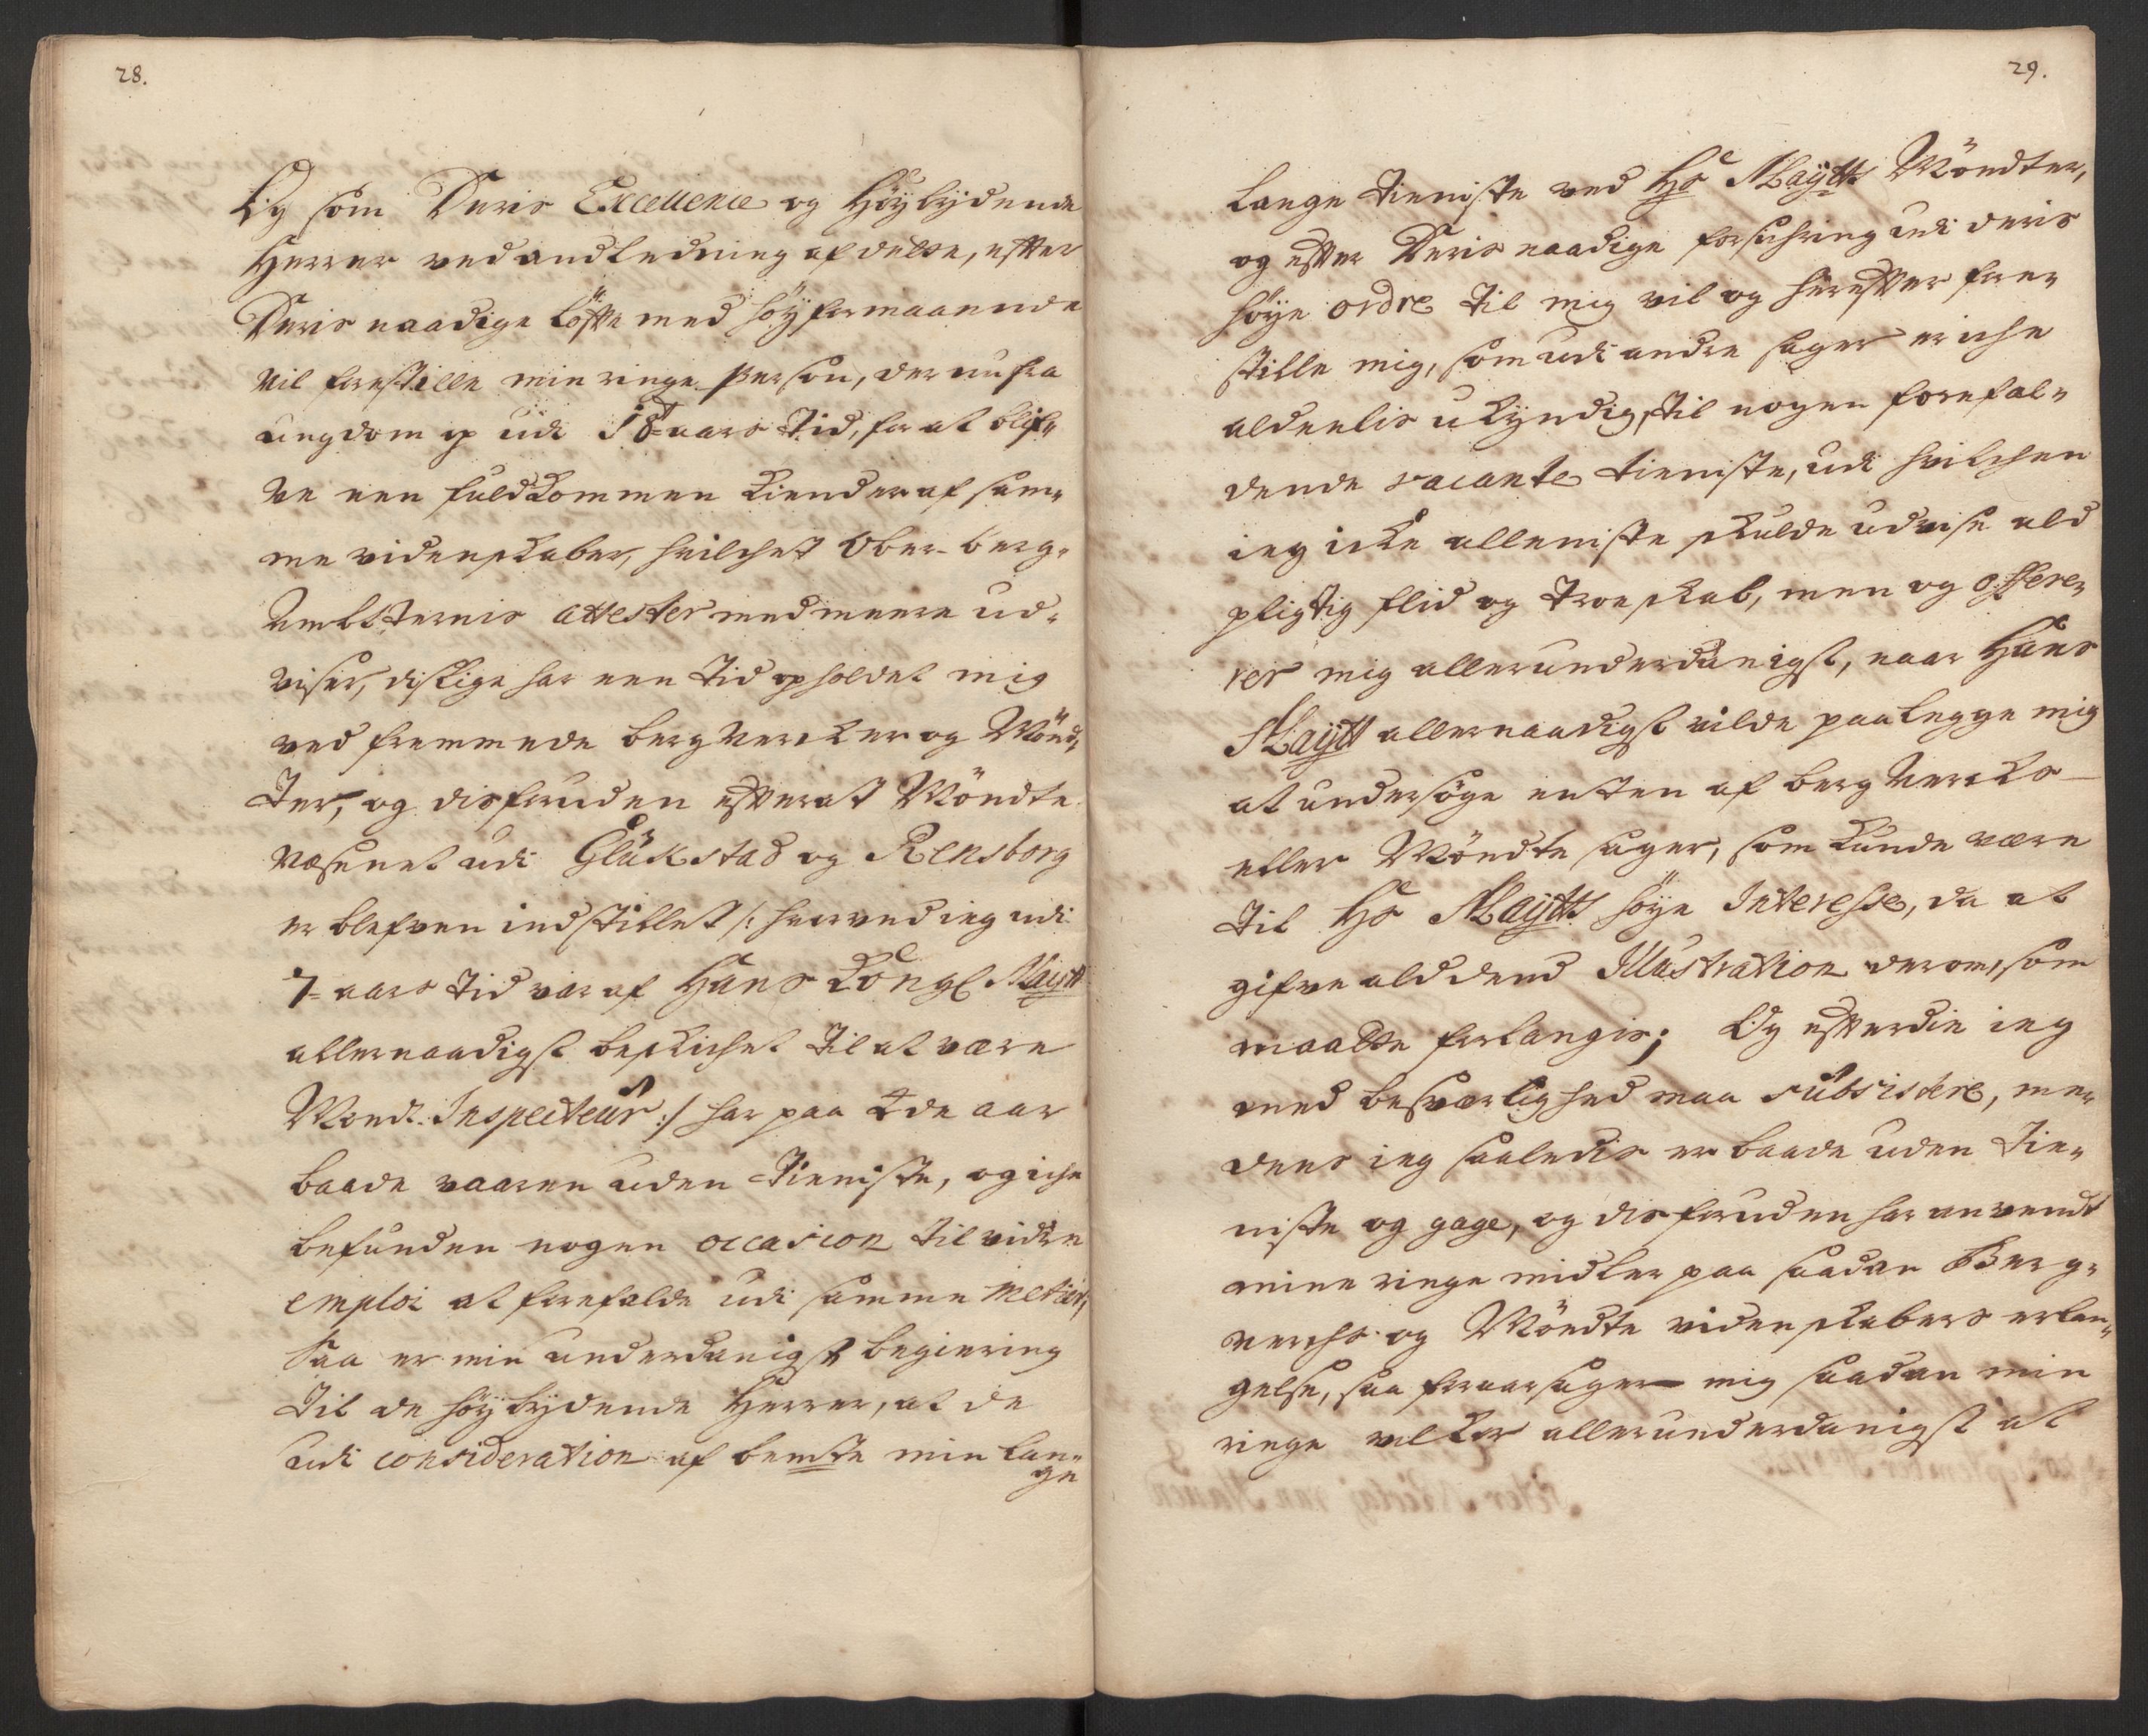 28.
Og som Deris Excellence og Höybydende
Herrer ved andledning af dette, efter
Deris naadige löffte med höyformaaende
vil forestille min ringe Person, der nu fra
ungdom op udi 18 aars Tid, for at blif-
ve een fuldkommen kiender af sam-
me videnskaber, hvilchet Ober-berg-
Ambtternis attester med meere ud-
viser, dislige har een tid opholdet mig
ved fremmede bergvercker og Mönd-
ter, og disforuden efterat Möndte
væsenet udi Glükstad og Rensborg
er blefven indstillet /: hvorved ieg udi
7 aars tid var af Hans Kongl Maÿtt
allernaadigst beskichet til at være
Mondt-Inspecteur :/ har paa 2de aar
baade vaaren uden tieniste, og iche
befunden nogen occasion til vidre
emploi at forefalde udi samme metier,
Saa er min underdanigst begiering
til de höybydende Herrer, at de
udi consideration af bemte min lan-
ge
29.
lange tieniste ved Hs Maÿtts Möndter,
og efter Deris naadige forsichring udi deris
höye ordre til mig vil og herefter fore-
stille mig, som udi andre sager er iche
aldeelis ukyndig, til nogen forefal-
dende vacante tieniste, udi hvilchen
ieg icke alleniste skulde udvise ald
pligtig flid og troeskab, men og offere-
rer mig allerunderdanigst, naar Hans
Maÿtt allernaadigst vilde paalegge mig
at undersöge enten af berg Vercks
eller Möndte sager, som kunde være
til Hs Maÿtts höye Interesse, da at
gifve ald dend Illustration derom, som
maatte forlangis; Og efterdie ieg
med besværlighed maa subsistere, me-
dens ieg saaledis er baade uden tie-
niste og gage, og disforuden har anvendt
mine ringe midler paa saadan Berg-
verchs og Möndte videnskabers erlan-
gelse, saa foraarsager mig saadan min
ringe vilkor allerunderdanigst at